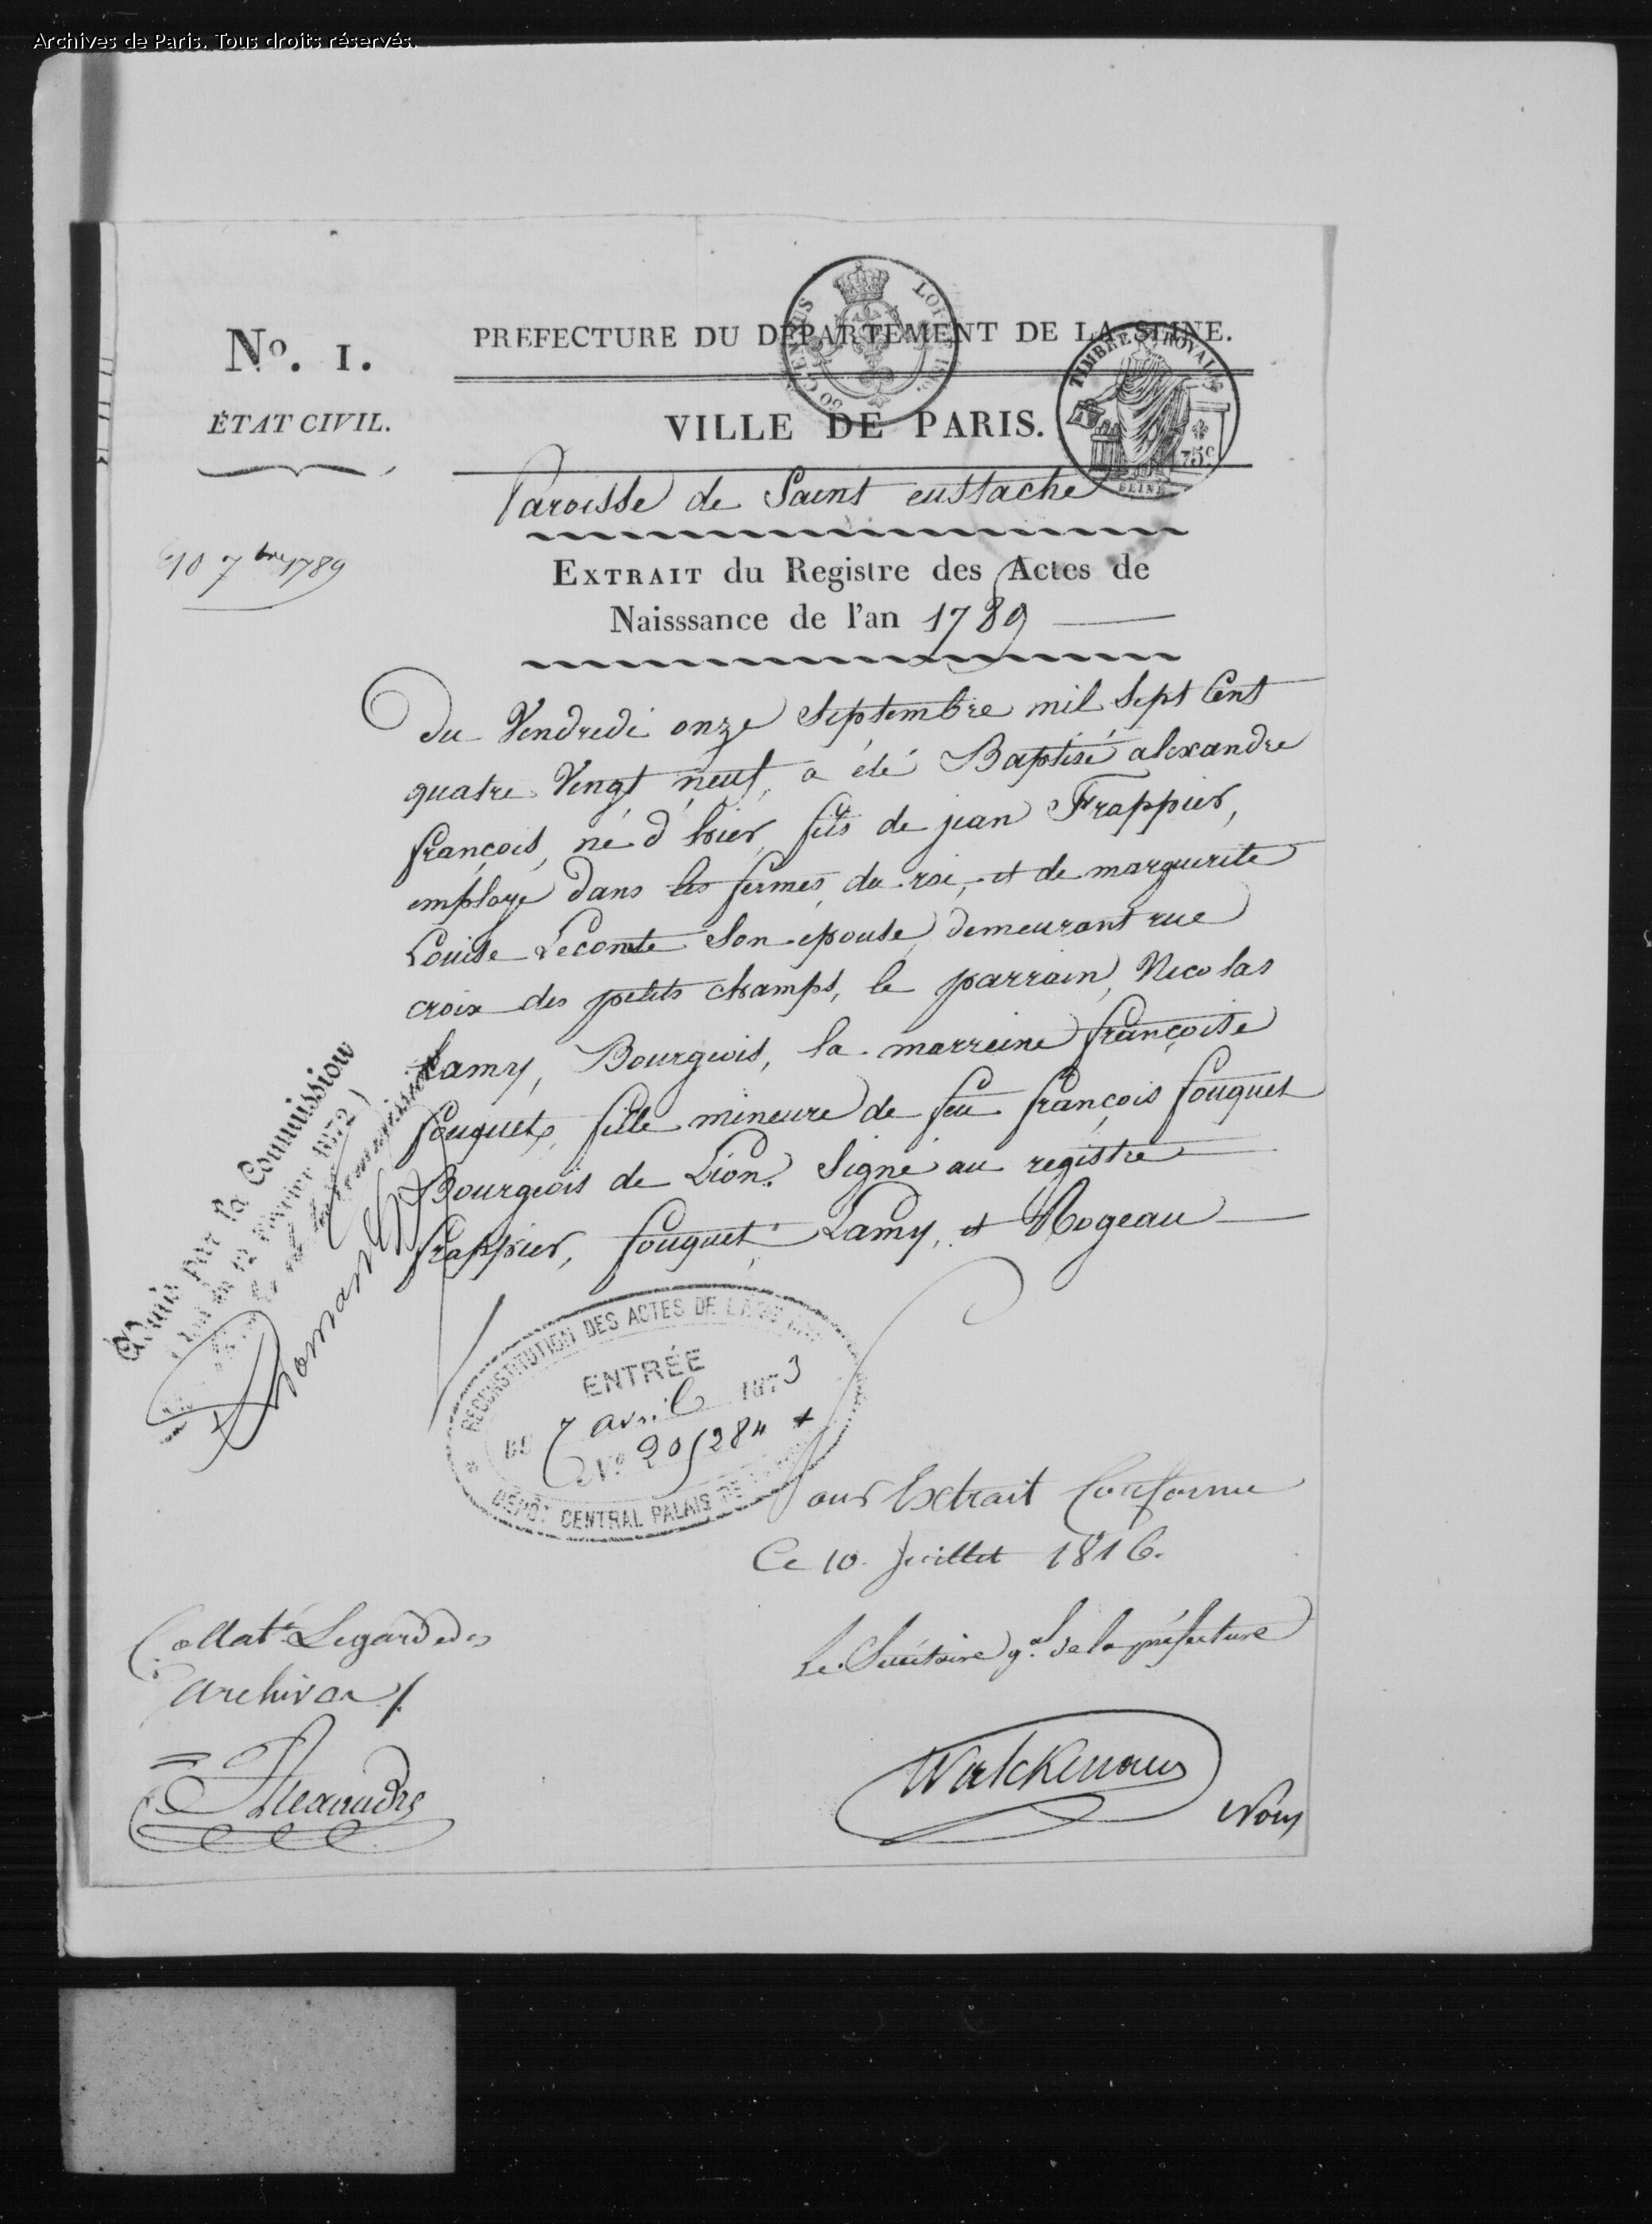 Archives de Paris. Tous droits réservés.
No. 1.
ÉTAT CIVIL.
PREFECTURE DU DÉPARTEMENT DE LA SEINE.
VILLE DE PARIS.
TIMBRE ROYAL
75c
SEINE
Paroisse de Saint eustache
10 7bre 1789
EXTRAIT du Registre des Actes de
Naisssance de l'an 1789
Du Vendredi onze Septembre mil Sept Cent
quatre Vingt neuf, a été Baptisé alexandre
françois, né d'hier, fils de jean Frappier,
employé dans les fermes du roi, et de marguerite
Louise Lecomte Son epouse, demeurant rue
croix des petits champs, le parrain, Nicolas
Lamy, Bourgeois, la marreine françoise
fouquet, fille mineure de feu françois fouquet
Bourgeois de Lion. Signé au registre
frappier, fouquet, Lamy, et Rogeau
Admis par la Commission
(Loi du 12 Février 1872)
RECONSTITUTION DES ACTES DE L'
ENTRÉE
DU 7 avril 1873
No 205284
DÉPÔT CENTRAL PALAIS DE
Pour Extrait Conforme
Ce 10 Juillet 1816.
Le Secrétaire gal de la préfecture
Walckenaer
Collaté Le garde des
archives
Alexandre
Nous